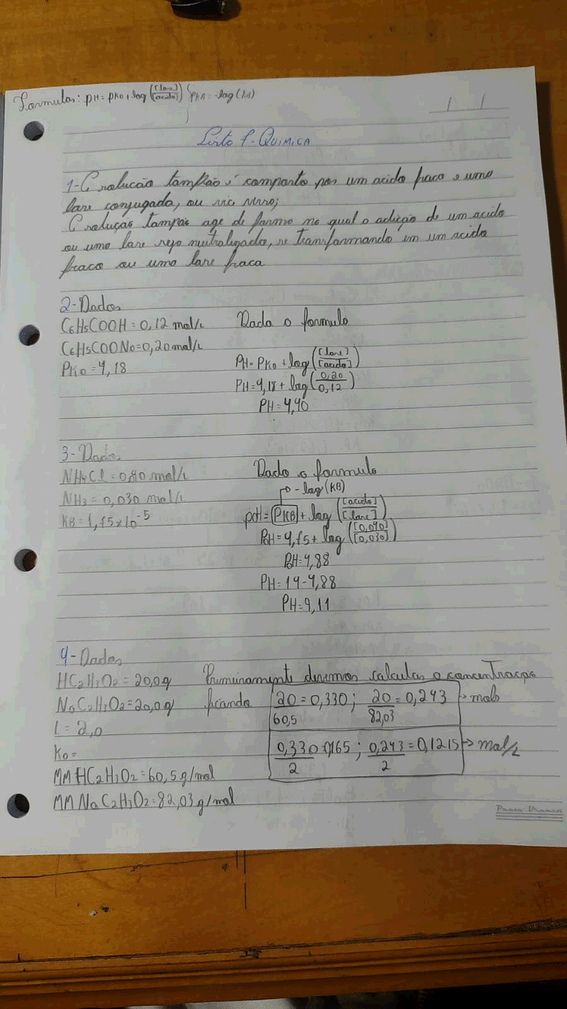 Formulas: PH=PKa+log([base]/[acido]) { PKa=-log(Ka)
/ /
Lista 1-QUIMICA
1-A solução tampão é composta por um acido fraco e uma
base conjugada, ou vice versa;
A solução tampão age de forma na qual a adição de um acido
ou uma base seja neutralizada, se transformando em um acido
fraco ou uma base fraca
2-Dados
C6H5COOH=0,12 mol/L
C6H5COONa=0,20 mol/L
PKa=4,18
Dada a formula
PH=PKa+log([base]/[acido])
PH=4,18+log(0,20/0,12)
PH=4,40
3-Dados
NH4Cl=0,40 mol/L
NH3=0,030 mol/L
KB=1,75x10^-5
Dada a formula
-log(KB)
pOH=PKB+log([acido]/[base])
PH=4,75+log([0,040]/[0,030])
PH=4,88
PH=14-4,88
PH=9,11
4-Dados
HC2H3O2=20,0g
NaC2H3O2=20,0g
L=2,0
Ka=
MM HC2H3O2=60,5g/mol
MM NaC2H3O2=82,03g/mol
Primeiramente devemos calcular a concentração
ficando 20/60,5=0,330 ; 20/82,03=0,243 → mols
0,330/2=0,165 ; 0,243/2=0,1215 → mol/L